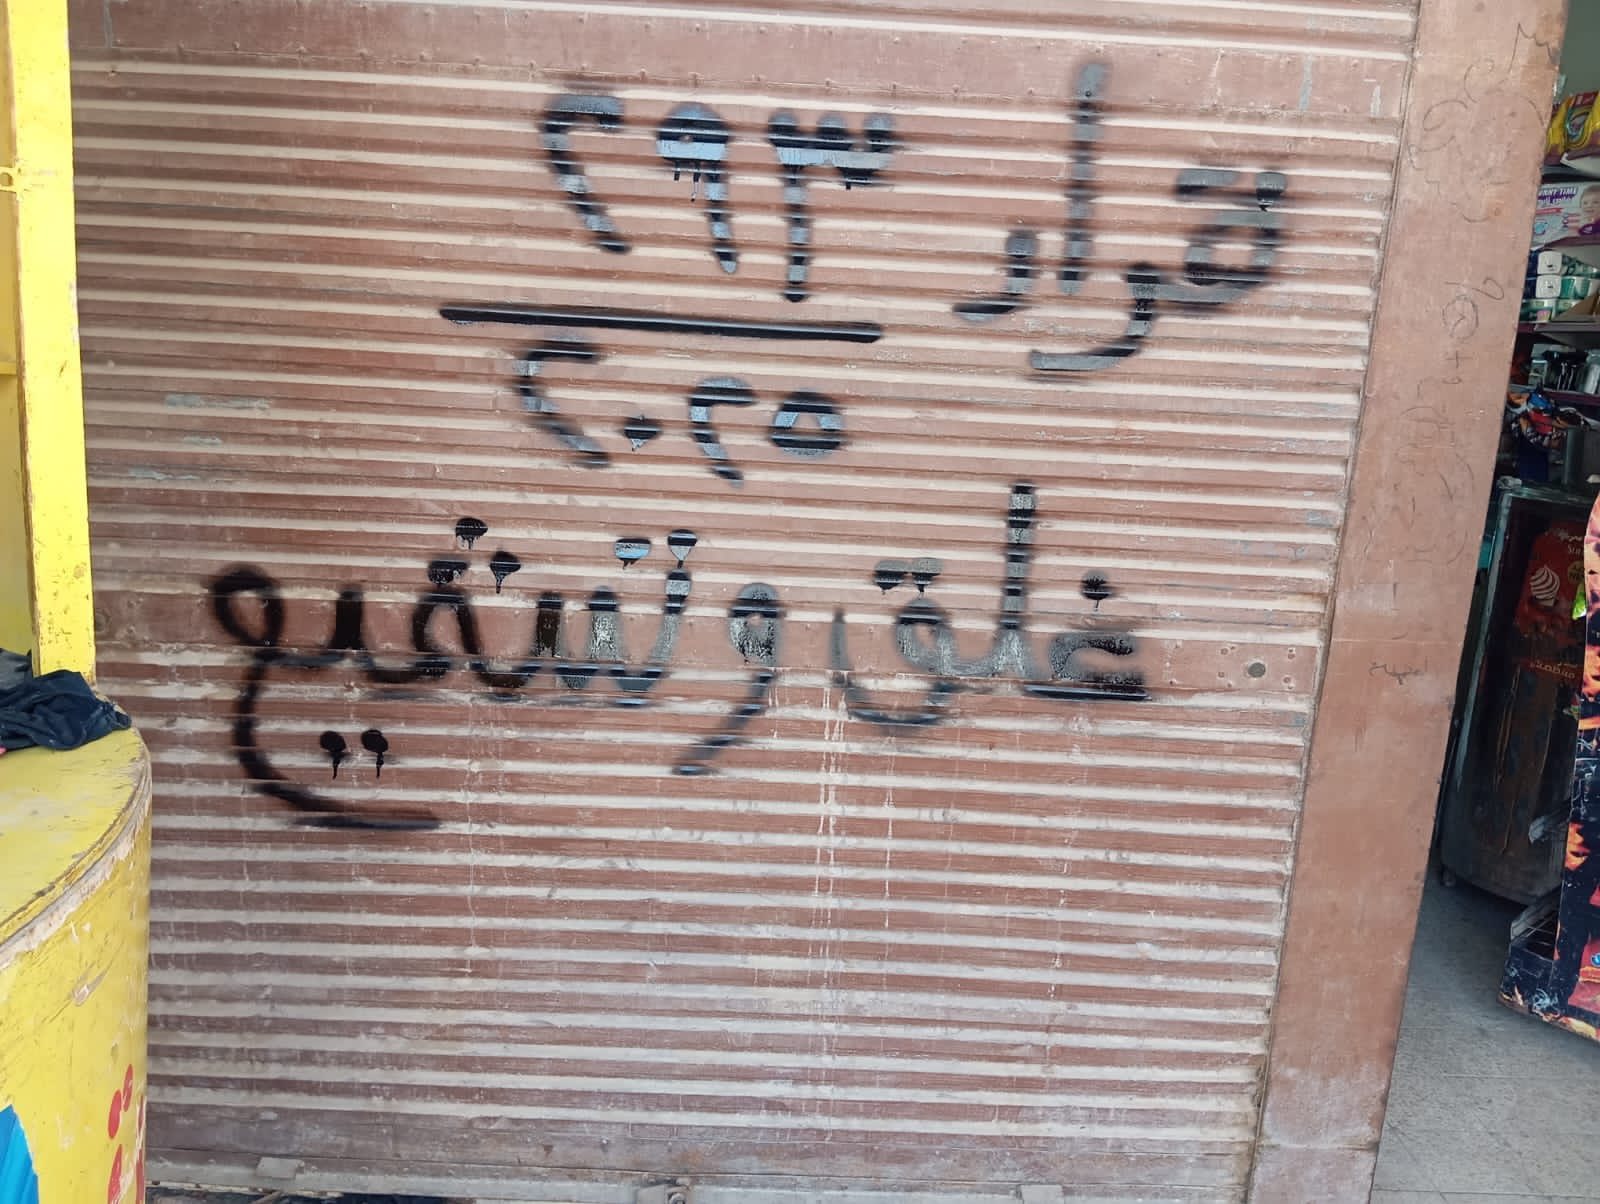 قرار ٢٩٣
٢٠٢٥
غلق وتشميع